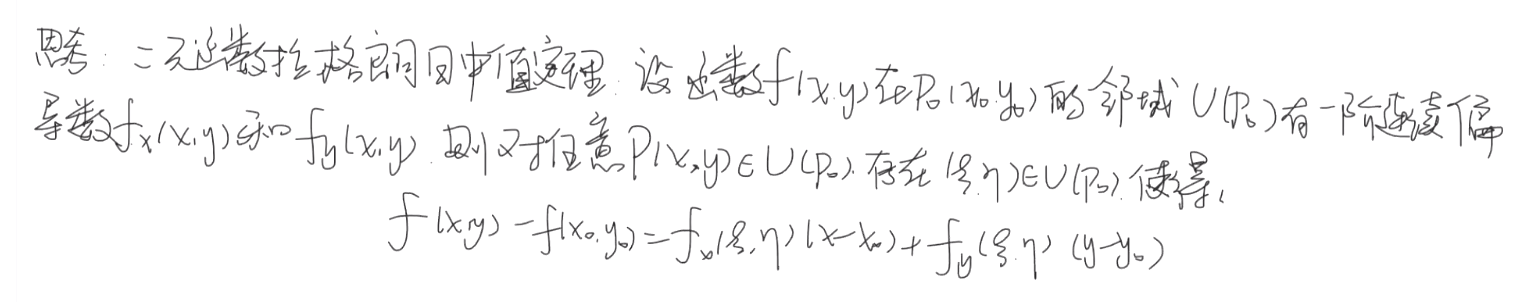 思考:二元函数拉格朗日中值定理.设函数f(x,y)在P₀(x₀,y₀)的邻域U(P₀)有一阶连续偏
导数fₓ(x,y)和f_y(x,y).则对任意P(x,y)∈U(P₀).存在(ξ,η)∈U(P₀).使得,
f(x,y)-f(x₀,y₀)=fₓ(ξ,η)(x-x₀)+f_y(ξ,η)(y-y₀)